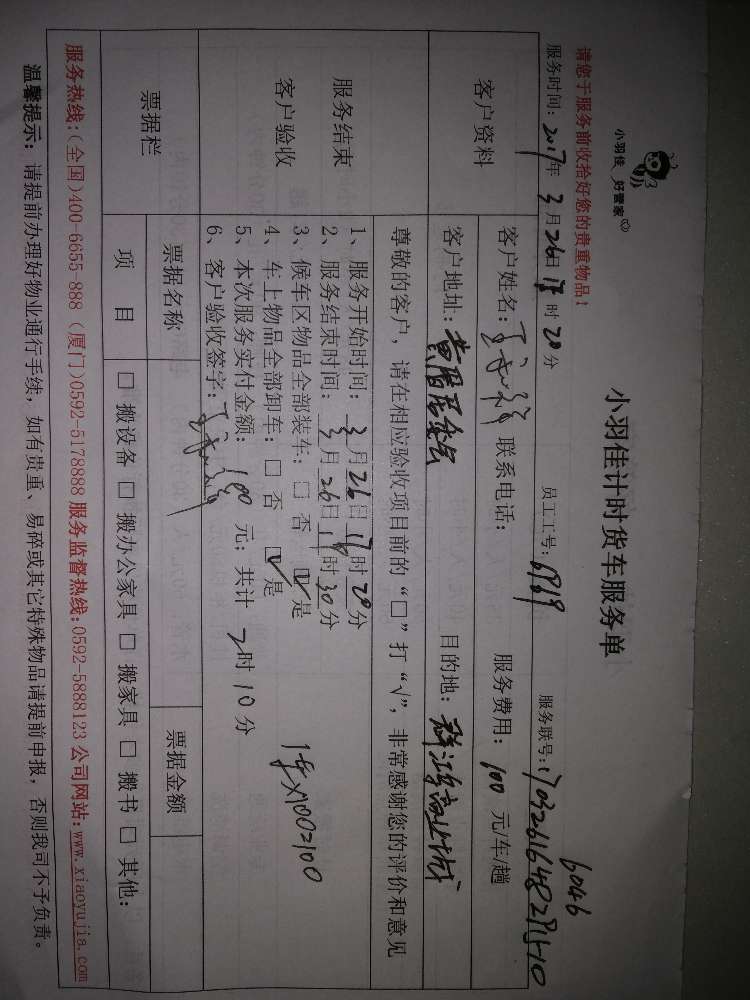 小羽佳 好管家
小羽佳计时货车服务单
6046
请您于服务前收拾好您的贵重物品！
服务时间：2017年 3月26日 时20分 员工工号：6969 服务联号：
客户资料
客户姓名： 联系电话： 服务费用：100 元/车/趟
客户地址： 目的地：
服务结束
客户验收
尊敬的客户，请在相应验收项目前的“□”打“√”，非常感谢您的评价和意见
1、服务开始时间：3月26日 时20分
2、服务结束时间：3月26日 时30分
3、候车区物品全部装车：□ 否 ☑ 是
4、车上物品全部卸车：□ 否 ☑ 是
5、本次服务实付金额：100 元；共计 2时10分
6、客户验收签字：
1车×100=100
票据栏
票据名称 票据金额
项 目 □ 搬设备 □ 搬办公家具 □ 搬家具 □ 搬书 □ 其他：
服务热线：(全国)400-6655-888 (厦门)0592-5178888 服务监督热线：0592-5888123 公司网站：www.xiaoyujia.com
温馨提示：请提前办理好物业通行手续，如有贵重、易碎或其它特殊物品请提前申报，否则我司不予负责。